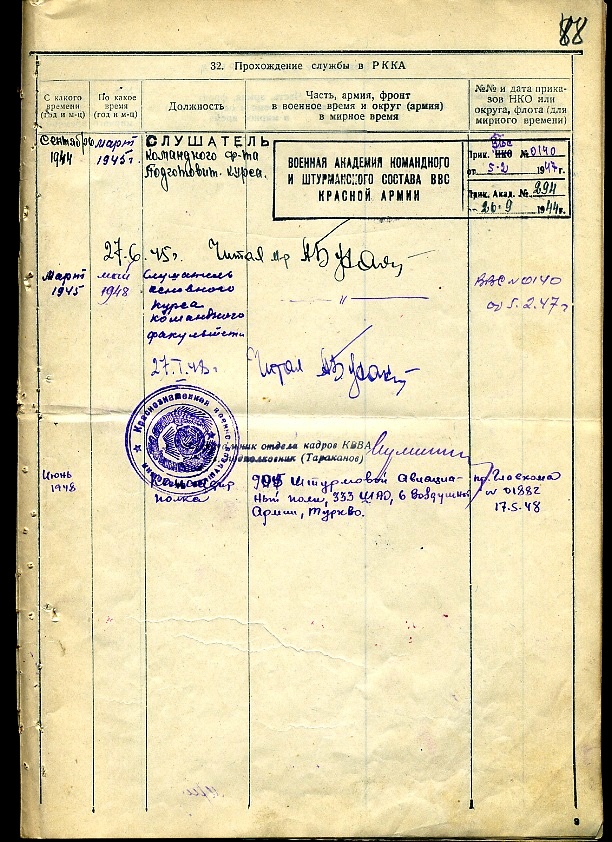 88
32. Прохождение службы в РККА
С какого времени (год и м-ц)
По какое время (год и м-ц)
Должность
Часть, армия, фронт
в военное время и округ (армия)
в мирное время
№№ и дата прика-
зов НКО или
округа, флота (для
мирного времени)
Сентябрь
1944
март
1945 г.
СЛУШАТЕЛЬ
командного ф-та
подготовит. курса.
ВОЕННАЯ АКАДЕМИЯ КОМАНДНОГО
И ШТУРМАНСКОГО СОСТАВА ВВС
КРАСНОЙ АРМИИ
Прик. НКО №0140
от 5-2 1947 г.
Прик. Акад. № 294
26-9 1944 г.
27.6.45 г. Читал
Март
1945
май
1948
Слушатель
основного
курса
командного
факультета
"
ВВС №0140
от 5.2.47 г
27.I.48 г. Читал
Краснознаменная
ник отдела кадров КВВА
подполковник (Тараканов)
Июнь
1948
Командир
полка
Штурмовой Авиацион-
ный полк, 333 ШАД, 6 Воздушной
Армии, ТуркВО.
пр. Главкома
№ 01882
17.5.48
9